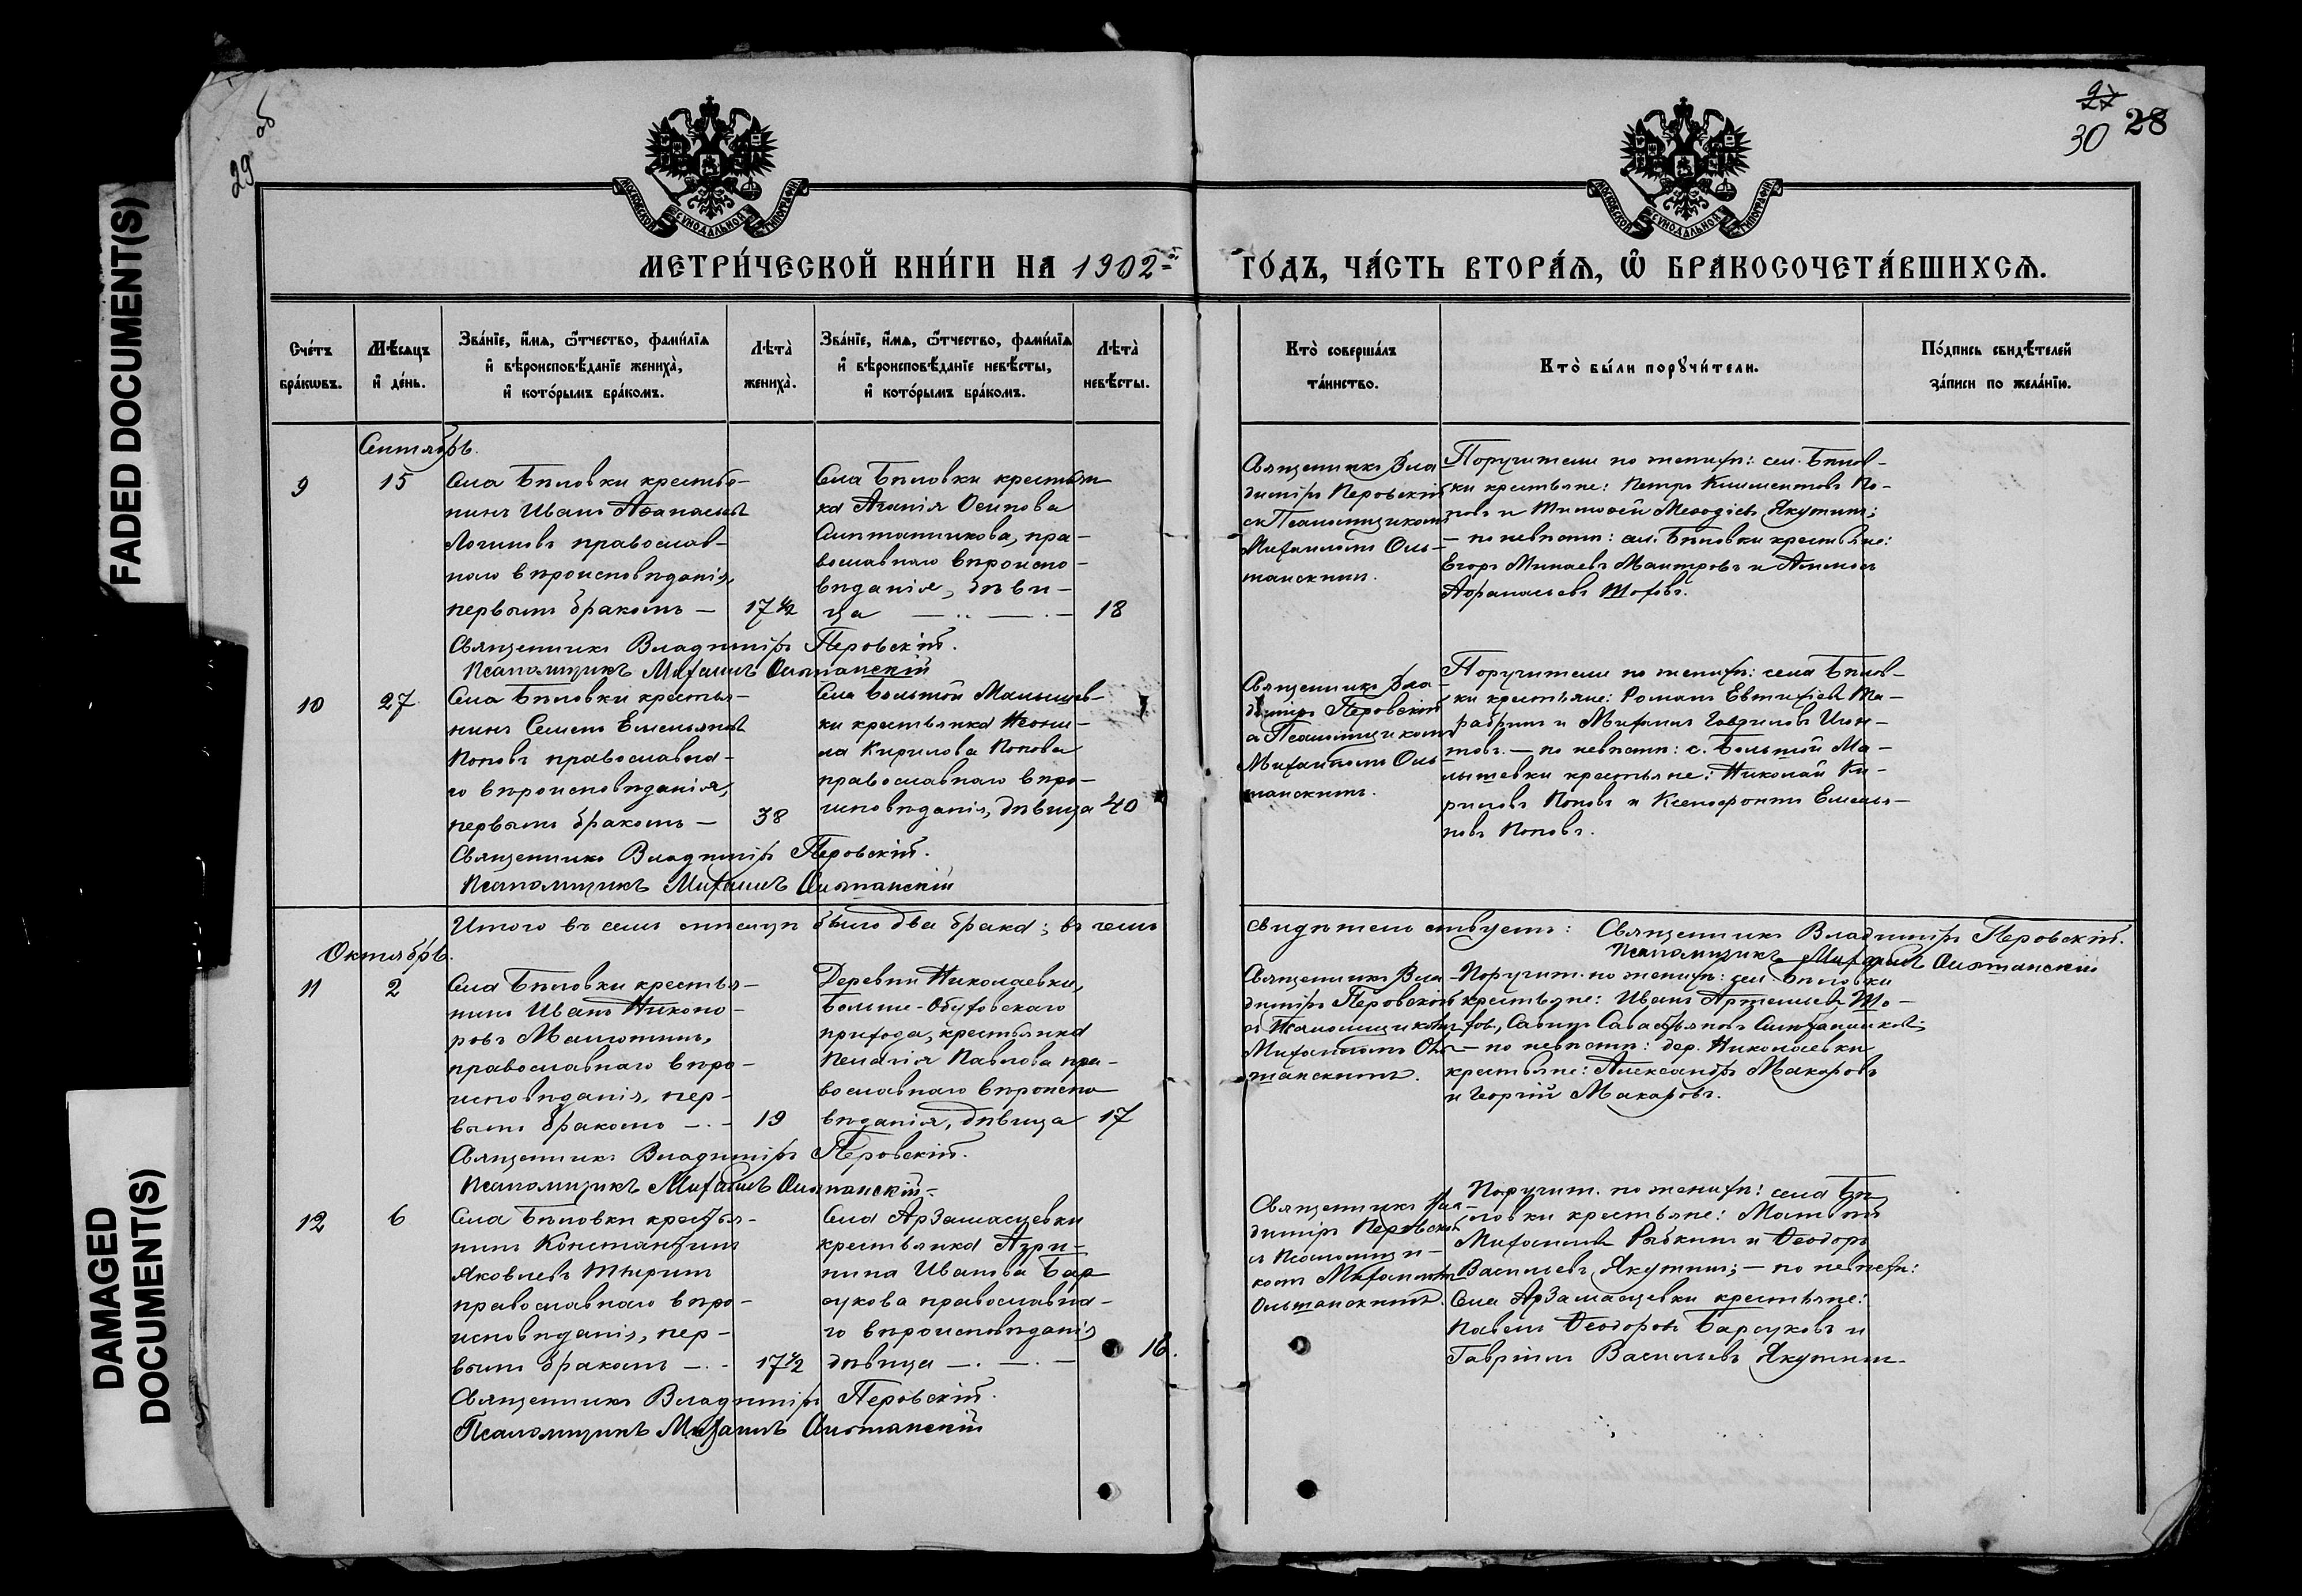 FADED DOCUMENT(S)
DAMAGED
DOCUMENT(S)
29 об
27
30 28
МОСКОВСКОЙ СУНОДАЛЬНОЙ ТИПОГРАФІИ
МОСКОВСКОЙ СУНОДАЛЬНОЙ ТИПОГРАФІИ
МЕТРИ́ЧЕСКОЙ КНИ́ГИ НА 1902-й
ГО́ДЪ, ЧА́СТЬ ВТОРА́Ѧ, Ѽ БРАКОСОЧЕТА́ВШИХСѦ.
Сче́тъ
бра́кѡвъ.
Мѣ́сѧцъ
и҆ де́нь.
Зва́нїе, и҆́мѧ, ѻ҆́тчество, фами́лїѧ
и҆ вѣроисповѣ́данїе жениха̀,
и҆ кото́рымъ бра́комъ.
Лѣта̀
жениха̀.
Зва́нїе, и҆́мѧ, ѻ҆́тчество, фами́лїѧ
и҆ вѣроисповѣ́данїе невѣ́сты,
и҆ кото́рымъ бра́комъ.
Лѣта̀
невѣ́сты.
Кто̀ соверша́лъ
та́инство.
Кто̀ бы́ли порꙋчи́тели.
По́дпись свидѣ́телей
за́писи по жела́нїю.
Сентябрь.
9
15
Села Бѣловки крестья-
нинъ Иванъ Аѳанасьевъ
Логиновъ православ-
наго вѣроисповѣданія,
первымъ бракомъ —
17 ½
Села Бѣловки крестьян
ка Агапія Осипова
православнаго вѣроиспо-
вѣданія, дѣви-
ца
18
Священникъ Вла-
диміръ Перовскій
съ Псаломщикомъ
Михаиломъ Оль-
шанскимъ.
Поручители по женихѣ: сел. Бѣлов-
ки крестьяне: Петръ Климентовъ По-
повъ и Тимоѳей Меѳодіевъ Якунинъ;
— по невѣстѣ: сел. Бѣловки крестьяне:
Егоръ Минаевъ
Аѳанасьевъ
Священникъ Владиміръ Перовскій.
Псаломщикъ Михаилъ Ольшанскій
10
27
Села Бѣловки крестья-
нинъ Семенъ Емельяновъ
Поповъ православна-
го вѣроисповѣданія,
первымъ бракомъ —
38
Села Большой Малышев-
ки крестьянка Неони-
ла Кирилова Попова
православнаго вѣро-
исповѣданія, дѣвица
40
Священникъ Вла-
диміръ Перовскій
съ Псаломщикомъ
Михаиломъ Оль-
шанскимъ.
Поручители по женихѣ: села Бѣлов-
ки крестьяне: Романъ Евтихіевъ
и Михаилъ Гавриловъ
— по невѣстѣ: с. Большой Ма-
лышевки крестьяне: Николай Ки-
риловъ Поповъ и Ксенофонтъ Емелья-
новъ Поповъ.
Священникъ Владиміръ Перовскій.
Псаломщикъ Михаилъ Ольшанскій
Итого въ семъ мѣсяцѣ было два брака; въ чемъ
свидѣтельствуетъ: Священникъ Владиміръ Перовскій.
Псаломщикъ Михаилъ Ольшанскій
Октябрь.
11
2
Села Бѣловки крестья-
нинъ Иванъ Никоно-
ровъ Малютинъ,
православнаго вѣро-
исповѣданія, пер-
вымъ бракомъ —
19
Деревни Николаевки,
Больше-Обуховскаго
прихода, крестьянка
Пелагія Павлова пра-
вославнаго вѣроиспо-
вѣданія, дѣвица
17
Священникъ Вла-
диміръ Перовскій
съ Псаломщикомъ
Михаиломъ Оль-
шанскимъ.
Поручит. по женихѣ: сел. Бѣловки
крестьяне: Иванъ Артемьевъ
— по невѣстѣ: дер. Николаевки
крестьяне: Александръ Макаровъ
и Георгій Макаровъ.
Священникъ Владиміръ Перовскій.
Псаломщикъ Михаилъ Ольшанскій.
12
6
Села Бѣловки крестья-
нинъ Константинъ
Яковлевъ
православнаго вѣро-
исповѣданія, пер-
вымъ бракомъ —
17 ½
Села Арзамасцевки
крестьянка Агри-
пина Иванова Бар-
сукова православна-
го вѣроисповѣданія
дѣвица —
16.
Священникъ Вла-
диміръ Перовскій
съ Псаломщи-
комъ Михаиломъ
Ольшанскимъ.
Поручит. по женихѣ: села Бѣ-
ловки крестьяне:
Михаиловъ Рыбкинъ и Ѳеодоръ
Васильевъ Якунинъ; — по невѣстѣ:
Села Арзамасцевки крестьяне:
Павелъ Ѳеодоровъ Барсуковъ и
Гавріилъ Васильевъ Якунинъ.
Священникъ Владиміръ Перовскій.
Псаломщикъ Михаилъ Ольшанскій